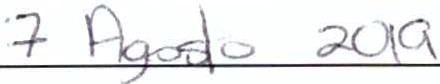 7 Agosto 2019